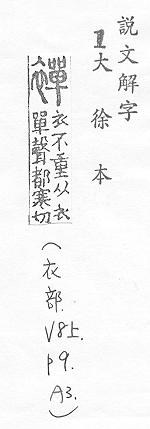 說文解字
1大徐本
襌 衣不重从衣
單聲都寒切
(衣部. V8上. P9. A3.)